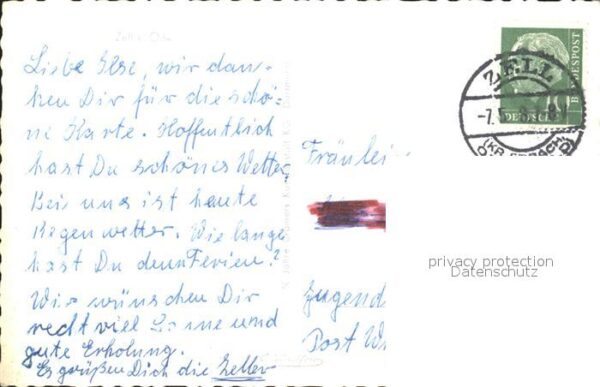 Liebe Else, wir dan-
ken Dir für die schö-
ne Karte. Hoffentlich
hast Du schönes Wetter,
Bei uns ist heute
Regenwetter. Wie lange
hast Du denn Ferien?
Wir wünschen Dir
recht viel Sonne und
gute Erholung.
Es grüßen Dich die Zeller
Fräulei
Jugend
Post W
ZELL
-7.
BUNDESPOST
DEUTSCHE
privacy protection
Datenschutz